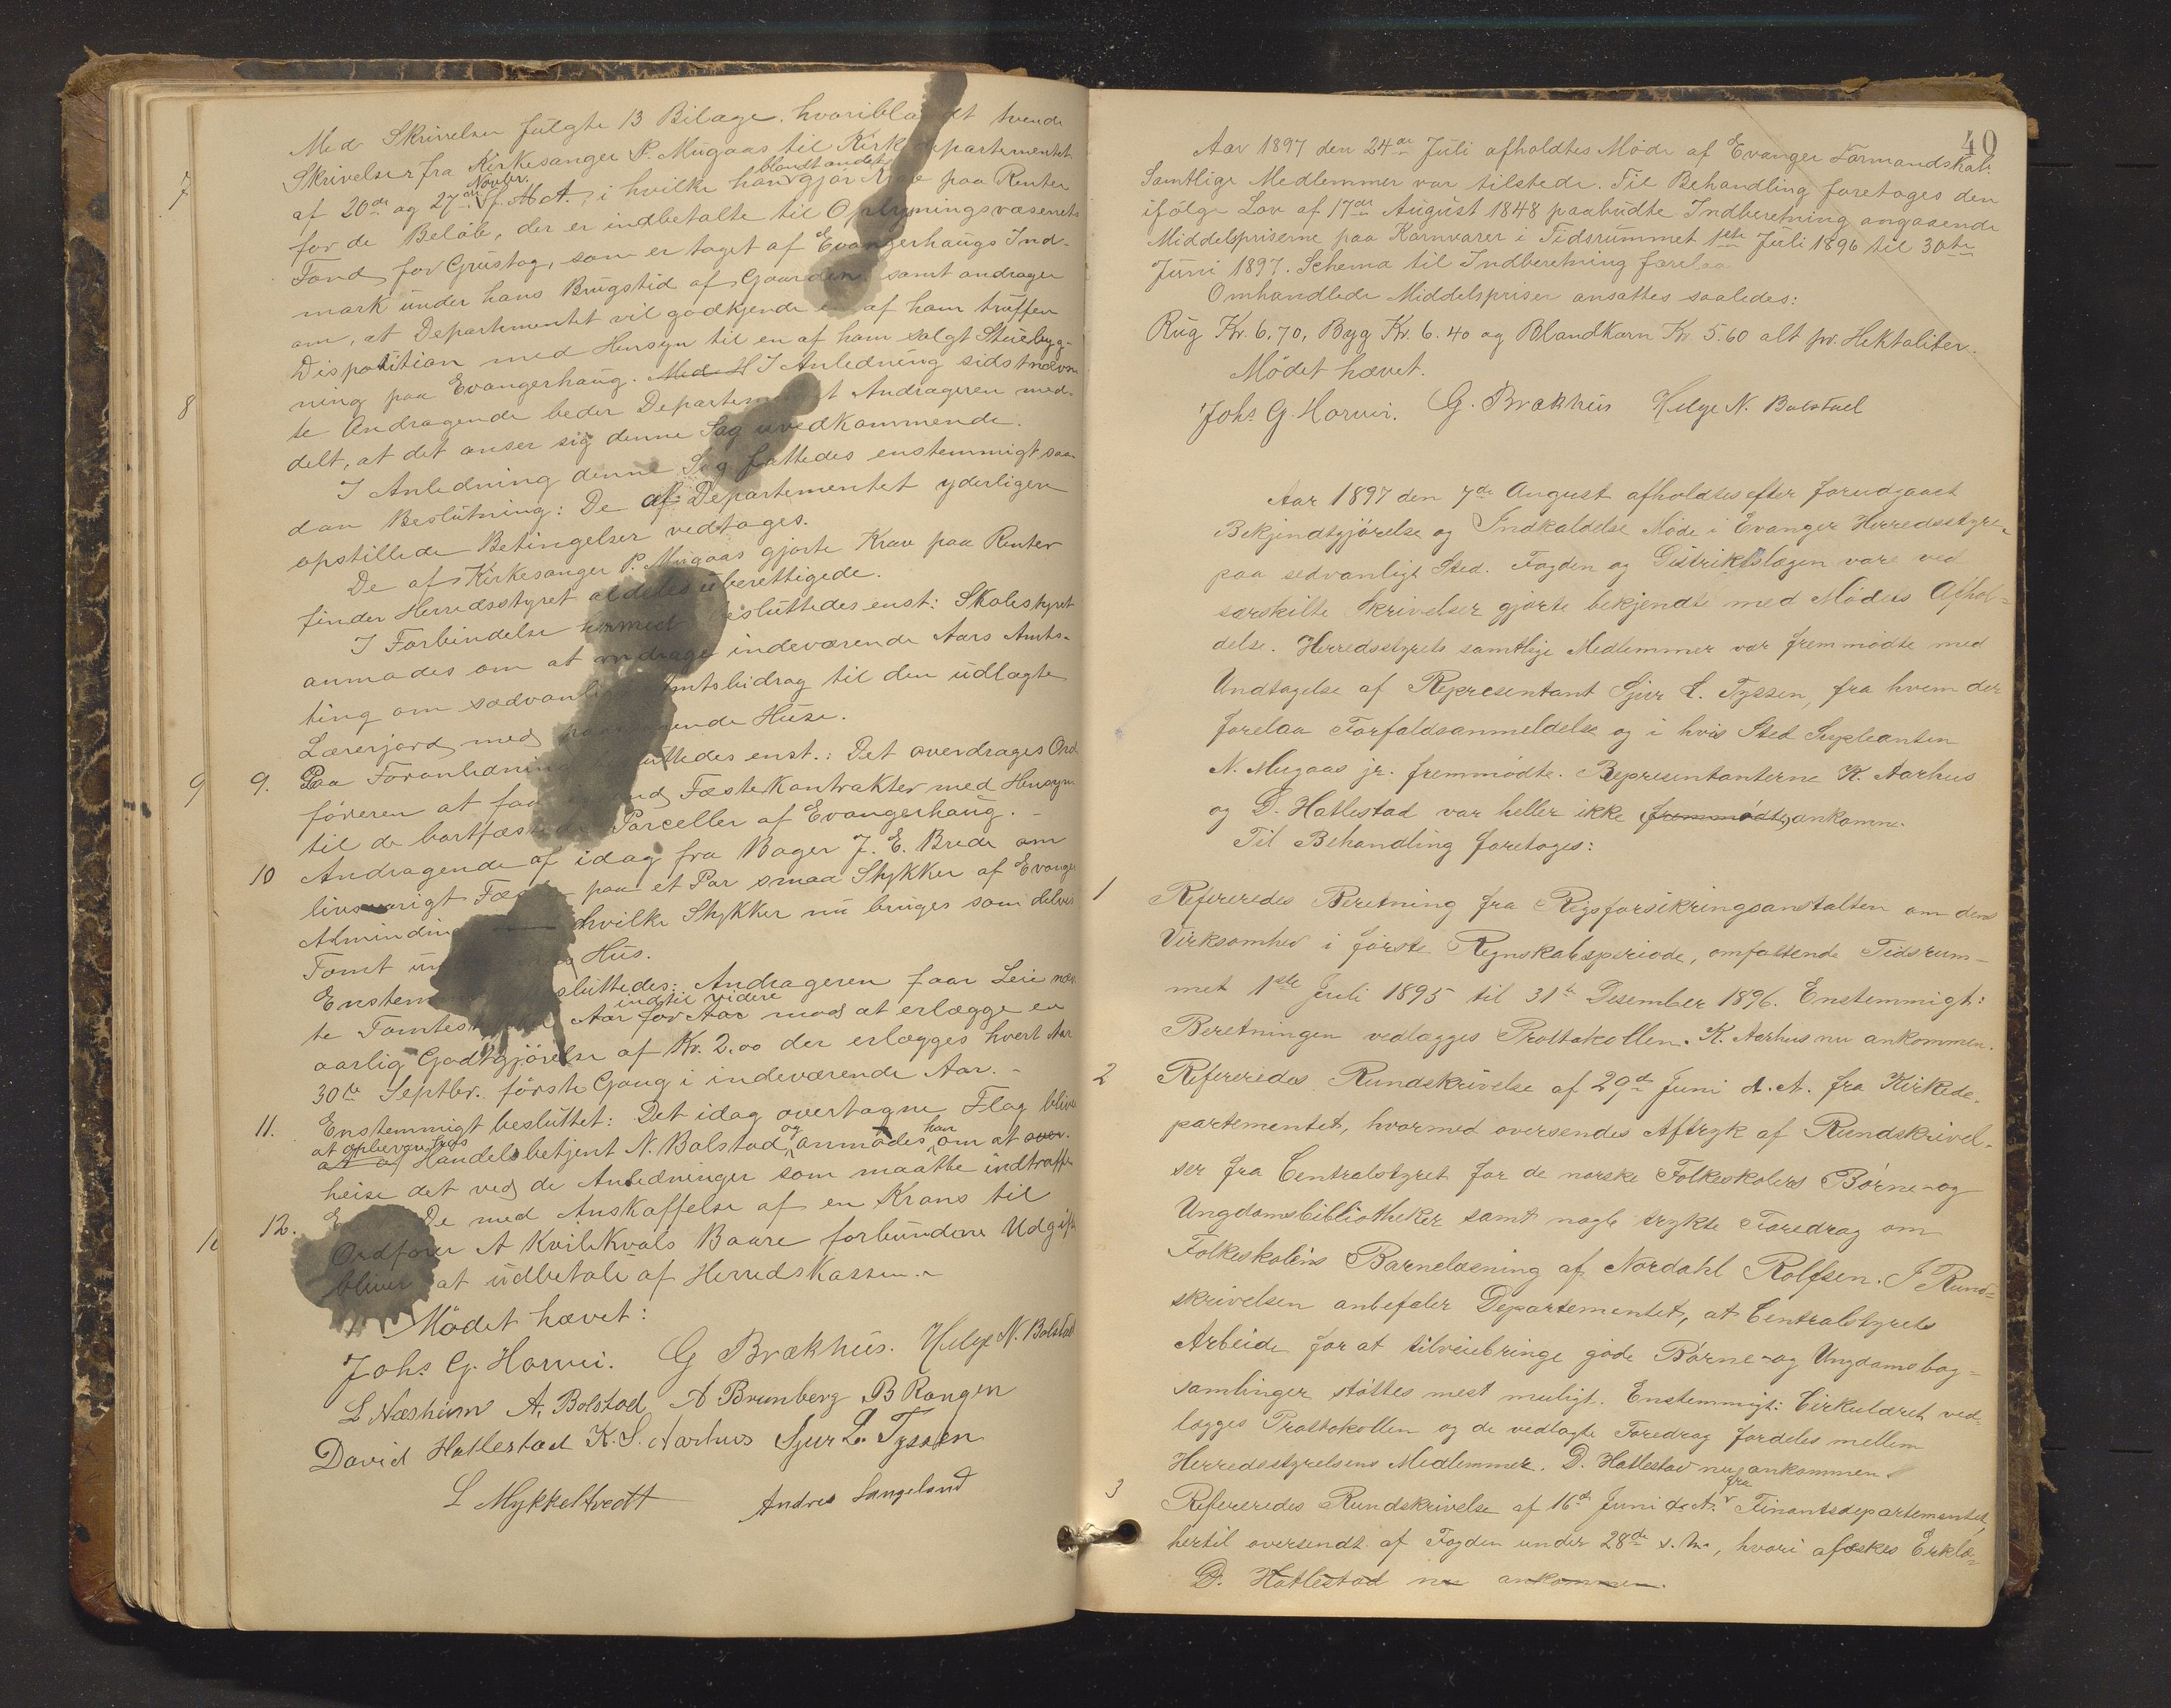 Med Skrivelsen fulgte 13 Bilage, hvoriblandt tvende
Skrivelser fra Kirkesanger P. Mugaas til Kirkedepartementet
af 20de og 27de Novbr. f. A., i hvilke han blandt andet gjør Krav paa Renter
for de Beløb, der er indbetalte til Oplysningsvæsenets
Fond for Grustag, som er taget af Evangerhaugs Ind-
mark under hans Brugstid af Gaarden, samt andrager
om, at Departementet vil godkjende en af ham truffen
Disposition med Hensyn til en af ham solgt Stuebyg-
ning paa Evangerhaug. Med H I Anledning sidstnævn
te Andragende beder Departementet Andrageren med-
delt, at det anser sig denne Sag uvedkommende.
I Anledning denne Sag fattedes enstemmigt saa
dan Beslutning: De af Departementet yderligere
opstillede Betingelser vedtages.
De af Kirkesanger P. Mugaas gjorte Krav paa Renter
finder Herredsstyret aldeles uberettigede.
I Forbindelse hermed besluttedes enst: Skolestyret
anmodes om at andrage indeværende Aars Amts-
ting om sædvanligt Amtsbidrag til den udlagte
Lærerjord med Huse.
9. Paa Foranledning besluttedes enst.: Det overdrages Ord
føreren at faa Fæstekontrakter med Hensyn
til de bortfæstede Parceller af Evangerhaug.
10 Andragende af idag fra Bager J. E. Brede om
livsvarigt Fæste paa et Par smaa Stykker af Evanger
Alminding hvilke Stykker nu bruges som delvis
Tomt Hus.
Enstemmigt besluttedes: Andrageren faar Leie næv
te Aar for Aar indtil videre mod at erlægge en
aarlig Godtgjørelse af Kr. 2.00 der erlægges hvert Aar
30te Septbr. første Gang i indeværende Aar.
11. Enstemmigt besluttet: Det idag overtagne Flag bliver
at opbevare hos
at af Handelsbetjent N. Bolstad og anmodes han om at over-
heise det ved de Anledninger som maatte indtræffe
12. De med Anskaffelse af en Krans til
Ordfører A Kvilekvals Baare forbundne Udgifter
bliver at udbetale af Herredskassen.
Mødet hævet:
Johs. G. Horvei. G Brækhus. Helge N. Bolstad
L Næsheim A. Bolstad A Brunborg B Rongen
David Hatlestad K. S. Aarhus Sjur L. Tyssen
L Mykkeltvedt Andres Langeland
7
8
9
10
40
Aar 1897 den 24de Juli afholdtes Møde af Evanger Formandskab.
Samtlige Medlemmer var tilstede. Til Behandling foretoges den
ifølge Lov af 17de August 1848 paabudte Indberetning angaaende
Middelpriserne paa Kornvarer i Tidsrummet 1ste Juli 1896 til 30te
Juni 1897. Schema til Indberetning forelaa
Omhandlede Middelspriser ansattes saaledes:
Rug Kr. 6.70, Byg Kr. 6.40 og Blandkorn Kr. 5.60 alt pr. Hektoliter.
Mødet hævet.
Johs. G. Horvei. G. Brækhus Helge N. Bolstad
Aar 1897 den 7de August afholdtes efter forudgaaet
Bekjendtgjørelse og Indkaldelse Møde i Evanger Herredsstyre
paa sedvanligt Sted. Fogden og Distriktslægen vare ved
særskilte Skrivelser gjorte bekjendte med Mødets Afhol-
delse. Herredsstyrets samtlige Medlemmer var fremmødte med
Undtagelse af Representant Sjur L. Tyssen, fra hvem der
forelaa Forfaldsanmeldelse og i hvis Sted Supleanten
N. Mugaas jr. fremmødte. Representanterne K. Aarhus
og D. Hatlestad var heller ikke fremmødte, ankomne.
Til Behandling foretoges:
1 Refereredes Beretning fra Rigsforsikringsanstalten om dens
Virksomhed i første Regnskabsperiode, omfattende Tidsrum-
met 1ste Juli 1895 til 31te Desember 1896. Enstemmigt:
Beretningen vedlægges Prottokollen. K. Aarhus nu ankommen.
2 Refereredes Rundskrivelse af 29de Juni d. A. fra Kirkede-
partementet, hvormed oversendes Aftryk af Rundskrivel-
ser fra Centralstyret for de norske Folkeskolers Børne- og
Ungdomsbibliotheker samt nogle trykte Foredrag om
Folkeskolens Barnelæsning af Nordahl Rolfsen. I Rund-
skrivelsen anbefaler Departementet, at Centralstyrets
Arbeide for at tilveiebringe gode Børne- og Ungdomsbog-
samlinger støttes mest muligt. Enstemmigt: Cirkulæret ved-
lægges Prottokollen og de vedlagte Foredrag fordeles mellem
Herredsstyrelsens Medlemmer. D. Hatlestad nu ankommen.
3 Refereredes Rundskrivelse af 16de Juni d. A. fra Finantsdepartementet,
hertil oversendt af Fogden under 28de s. M., hvori afæskes Erklæ-
D. Hatlestad nu ankommen.